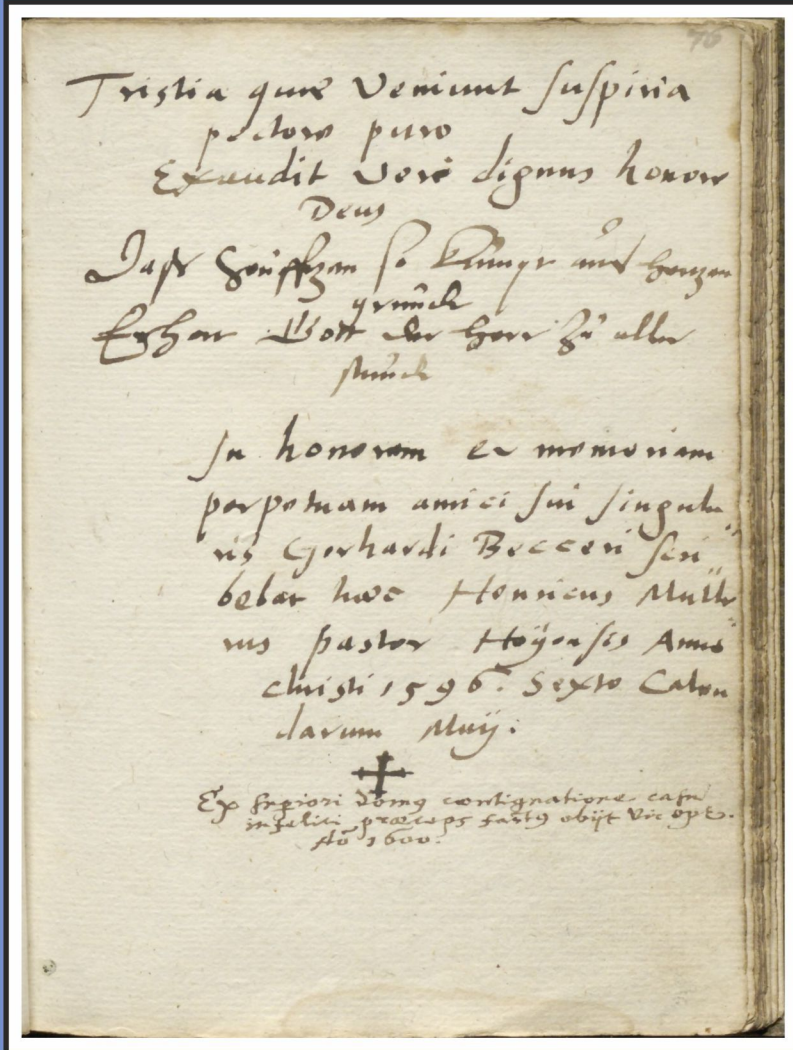 76
Tristia quæ Veniunt suspiria
pectore puro
Exaudit Vere dignus honore
Deus
Daß Seüfftzen so kümpt auß hertzen
grundt
Erhört Gott der Herr zů aller
stundt
In honorem et memoriam
perpetuam amici sui singula„
ris Gerhardi Becceri scri„
bebat hæc Henricus Mulle„
rus pastor Hoÿensis Anno
christi 1596. Sexto Calen
darum Maij.
Ex supiori domꝰ contignatione casu
infelici præceps factꝰ obijt
Aō 1600.